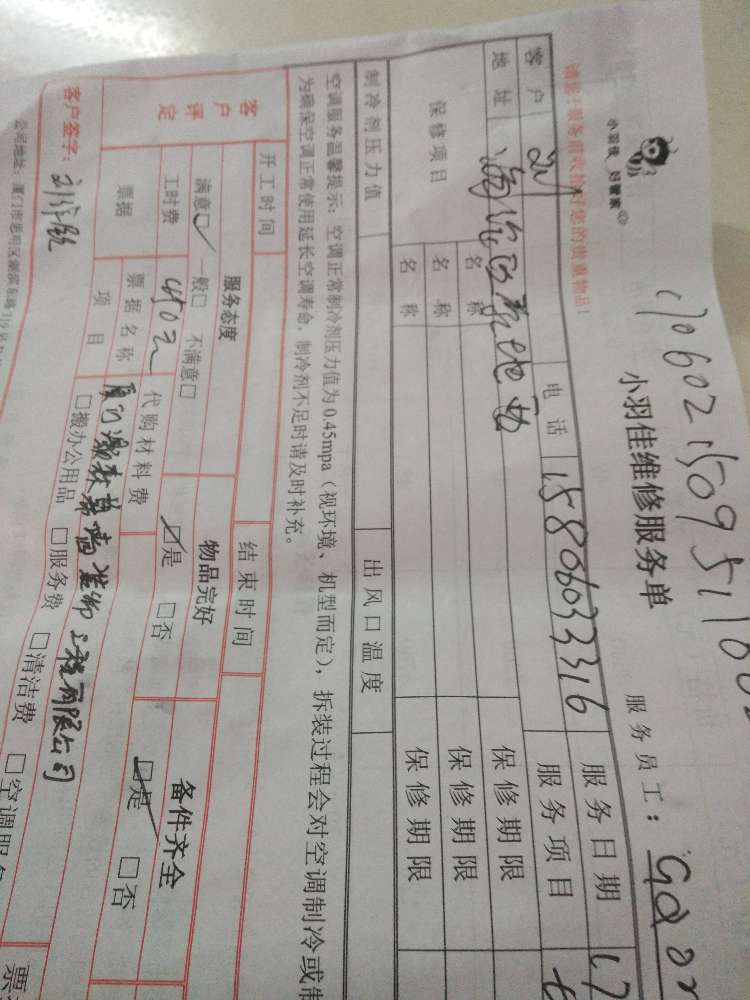 170602150951100
小羽佳 好管家
小羽佳维修服务单
服务员工:
请您于服务前收拾好您的贵重物品!
客户 刘 电话 15806033316 服务日期 17
地址 服务项目
保修项目 名称 保修期限
名称 保修期限
名称 保修期限
制冷剂压力值 出风口温度
空调服务温馨提示:空调正常制冷剂压力值为0.45mpa(视环境、机型而定),拆装过程会对空调制冷或制
为确保空调正常使用延长空调寿命,制冷剂不足时请及时补充。
开工时间 结束时间
客户评定 服务态度 物品完好 备件齐全
满意☑ 一般□ 不满意□ ☑是 □否 ☑是 □否
工时费 450元 代购材料费
票据 票据名称
项目 □搬办公用品 □服务费 □清洁费 □空调服务
客户签字:
公司地址:厦门市思明区湖滨东路319号